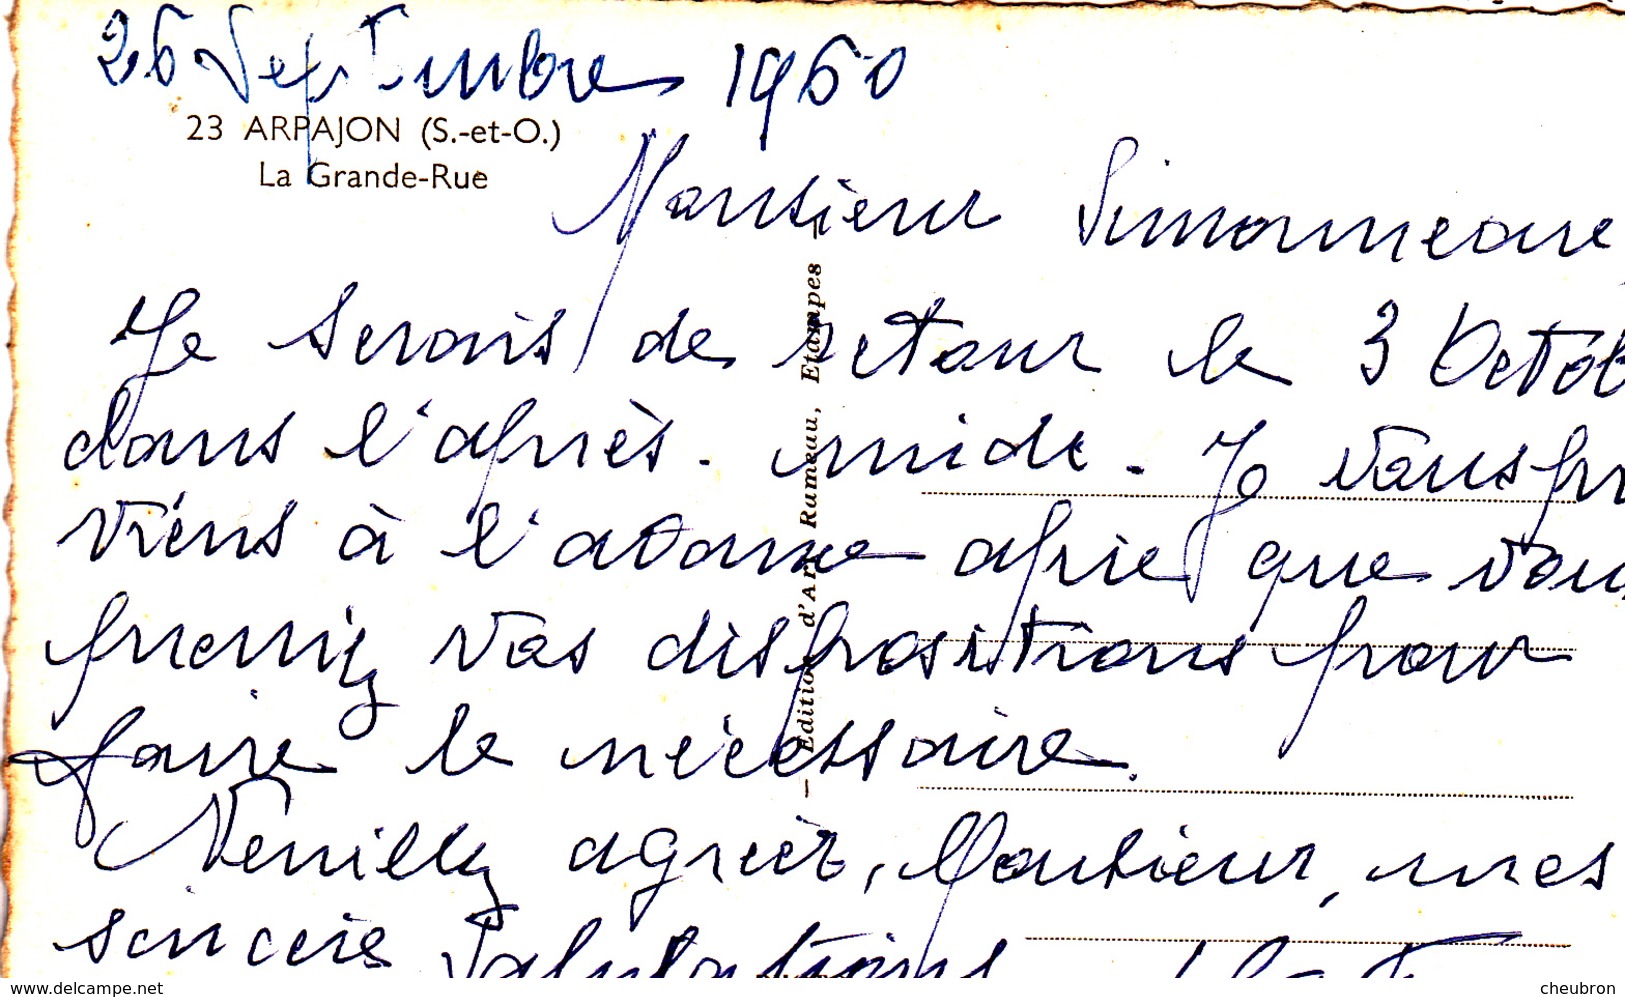 26 Septembre 1960
23 ARPAJON (S.-et-O.)
La Grande-Rue
Monsieur Simonneau,
Je serais de retour le 3 Octob
dans l'après-midi. Je vous pr
viens à l'avance afin que vous
preniez vos dispositions pour
faire le nécessaire.
Veuillez agréer, Monsieur, mes
sincère Salutations
— Edition d'Art Rameau, Etampes —
www.delcampe.net
cheubron